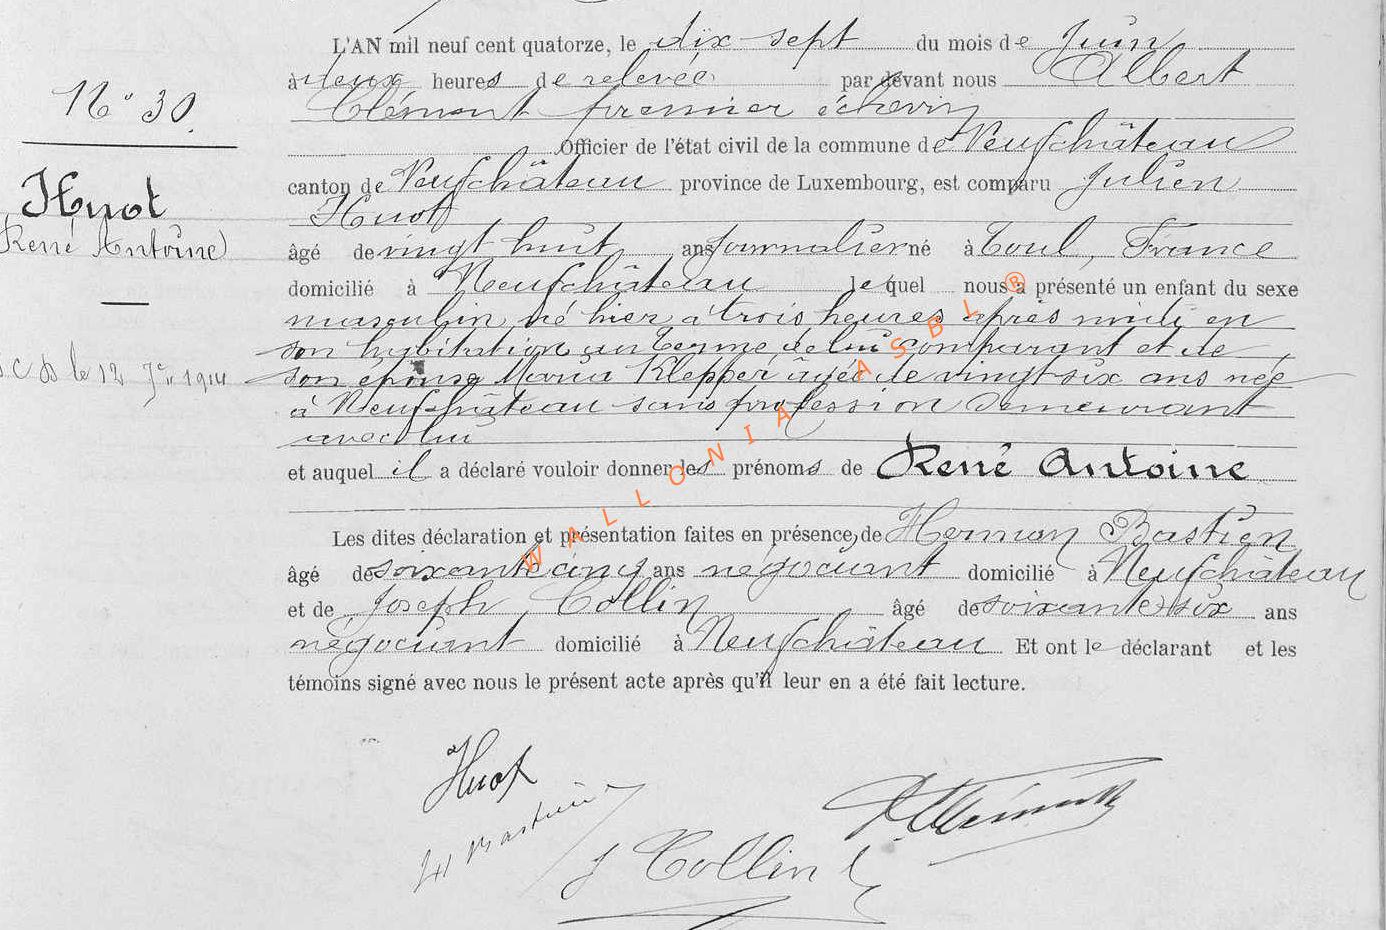 L'AN mil neuf cent quatorze, le dix sept du mois de Juin
à deux heures de relevée par devant nous Albert
Clément premier échevin
Officier de l'état civil de la commune de Neufchâteau
canton de Neufchâteau province de Luxembourg, est comparu Julien
Huot
âgé de vingt huit ans journalier né à Toul, France
domicilié à Neufchâteau lequel nous a présenté un enfant du sexe
masculin, né hier à trois heures après midi en
son habitation au Terme de lui comparant et de
son épouse Maria Klepper âgée de vingt-six ans née
à Neufchâteau sans profession demeurant
avec lui
et auquel il a déclaré vouloir donner les prénoms de René Antoine
Les dites déclaration et présentation faites en présence de Herman Bastien
âgé de soixante cinq ans négociant domicilié à Neufchâteau
et de Joseph Collin âgé de soixante six ans
négociant domicilié à Neufchâteau Et ont le déclarant et les
témoins signé avec nous le présent acte après qu'il leur en a été fait lecture.
N° 30.
Huot
René Antoine
le 12 7bre 1914
Huot
H Bastien
J Collin
A Clément
WALLONIA ASBL ®